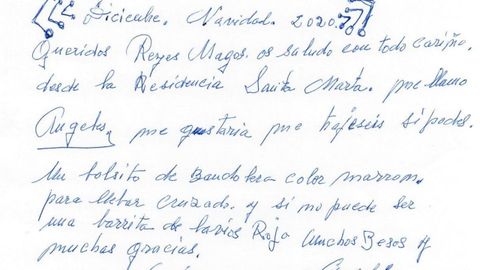 Diciembre. Navidad. 2020.
Queridos Reyes Magos. os saludo con todo cariño.
desde la Residencia Santa Marta. me llamo
Angeles, me gustaria me trajeseis si podes.
Un bolsito de Bandolera color marrom.
para llebar cruzado. y si no puede ser
una barrita de lavios Rojo Muchos Besos y
muchas gracias.